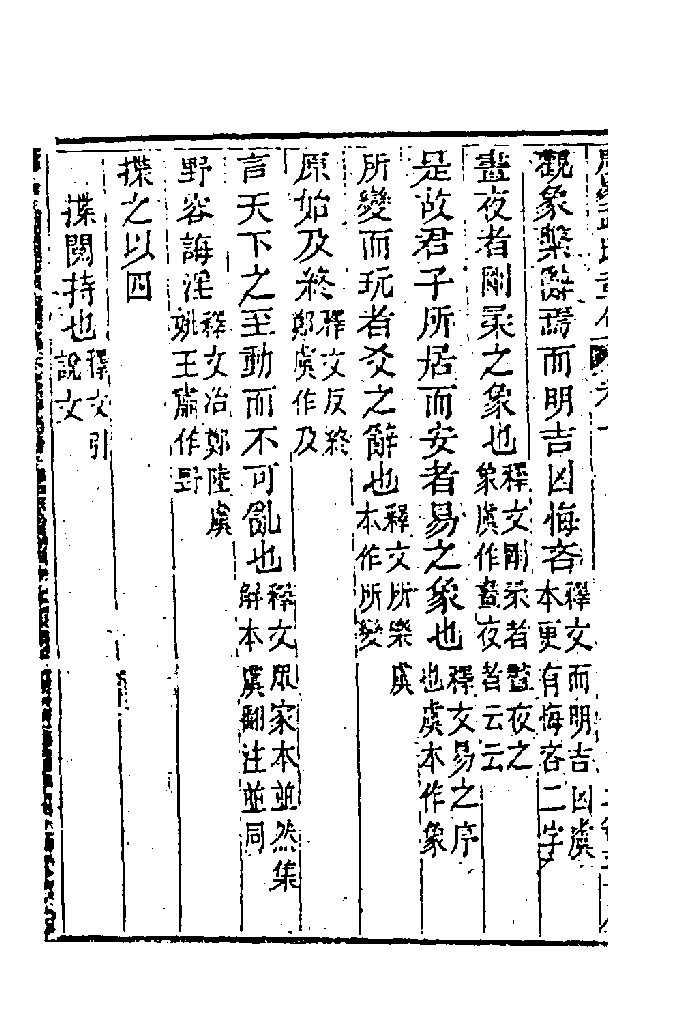 觀象繫辭焉而明吉凶悔吝釋文而明吉凶虞本更有悔吝二字
晝夜者剛柔之象也釋文剛柔者晝夜之象虞作晝夜者云云
是故君子所居而安者易之象也釋文易之序也虞本作象
所變而玩者爻之辭也釋文所樂虞本作所變
原始及終釋文反終鄭虞作及
言天下之至動而不可亂也釋文眾家本並然集解本虞翻注並同
野容誨淫釋文冶鄭陸虞姚王肅作野
揲之以四
揲閱持也釋文引說文